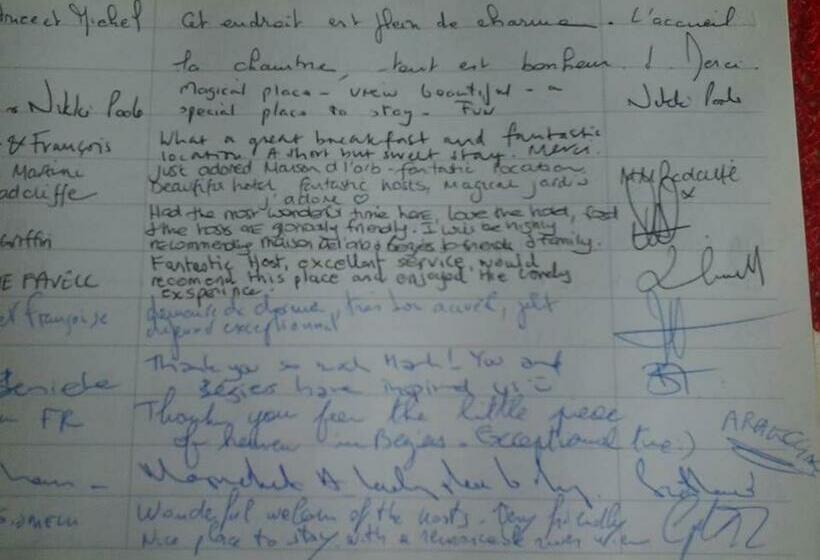 et Michel Cet endroit est plein de charme. L'accueil
la chambre, tout est bonheur! Merci.
Nikki Poole Magical place - view beautiful - a Nikki Poole
special place to stay - Fun
& François What a great breakfast and fantastic
location. A short but sweet stay. Merci.
Martine Just adored Maison d l'orb - fantastic location
adcliffe Beautiful hotel fantastic hosts, Magical jardin
j'adore ♡
riffin Had the most wonderful time here, love the hotel, food
& the hosts are friendly. I will be highly
recommending maison de l'orb & Bezies to friends & family.
Fantastic Host, excellent service, would
recomend this place and enjoyed the lovely
exsperience.
et Françoise demeure de charme, tres bon accueil, petit
exceptionnel
Thank you so much Mark! You and
Bezies have inspired us
FR Thank you for the little piece
of heaven in Bezies. Exceptional
A lovely place to stay. Scotland
Wonderful welcom of the hosts. Very friendly
Nice place to stay with a remarcable river view